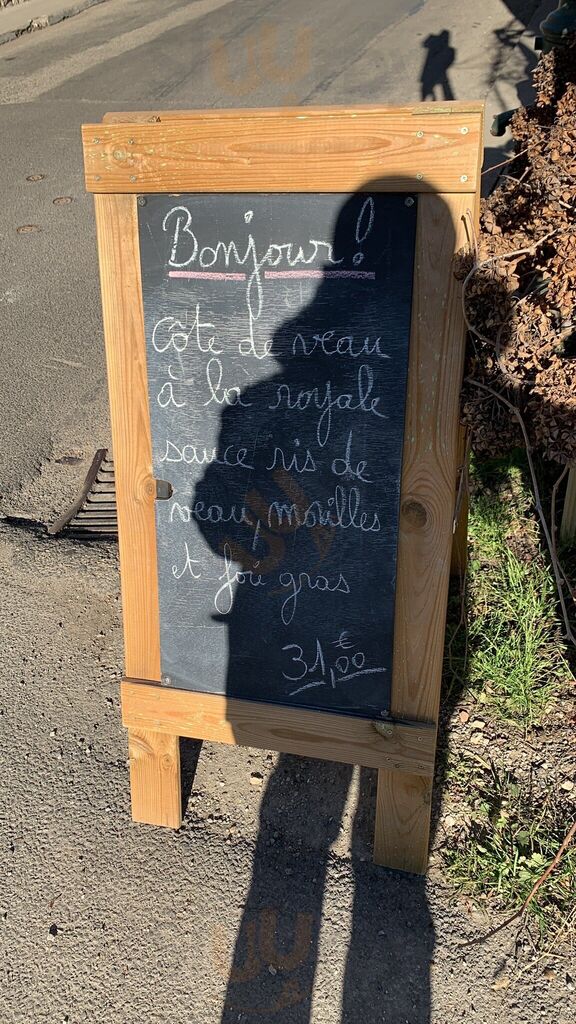 Bonjour!
Côte de veau
à la royale
sauce ris de
veau, morilles
et foie gras
31,00 €